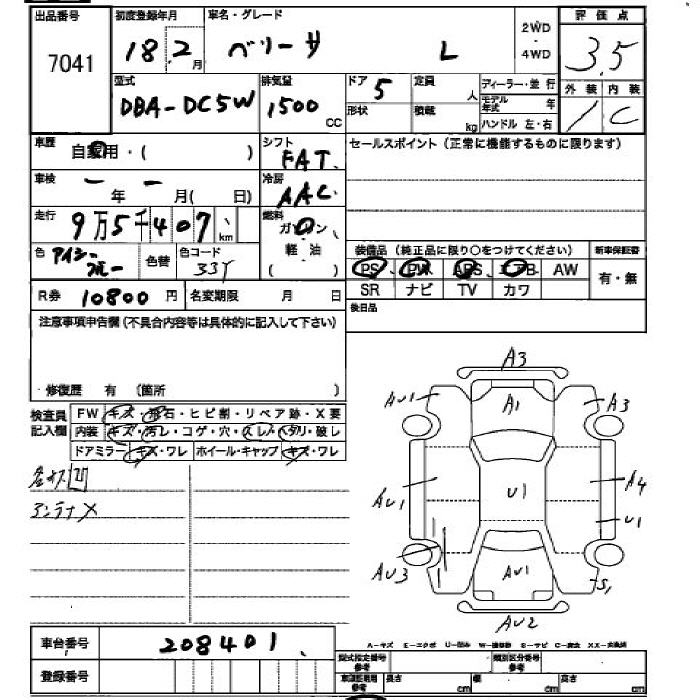 出品番号 初度登録年月 車名・グレード 2WD・4WD 評価点
7041 18 2月 ベリーサ L 3.5
型式 排気量 ドア 定員 ディーラー・並行 外装 内装
DBA-DC5W 1500 CC 5 人 モデル年式 年 / C
形状 積載 kg ハンドル 左・右
車歴 自家用・( ) シフト FAT セールスポイント（正常に機能するものに限ります）
車検 ー 年 ー 月( 日) 冷房 AAC
走行 9万5千407 km 燃料 ガソリン 軽・油 ( )
色 アイシーブルー 色替 色コード 33Y
装備品（純正品に限り○をつけてください） 新車保証書
PS PW ABS エアB AW 有・無
SR ナビ TV カワ
R券 10800円 名変期限 月 日 後日品
注意事項申告欄（不具合内容等は具体的に記入して下さい）
・修復歴 有 (箇所 )
検査員記入欄 FW キズ・飛石・ヒビ割・リペア跡・X要
内装 キズ・汚レ・コゲ・穴・スレ・ヘタリ・破レ
ドアミラー キズ・ワレ ホイール・キャップ キズ・ワレ
アンテナX
A3
AU1 A1 A3
AU1 U1 A4
U1
AU3 AU1 S1
AU2
A-キズ E-エクボ U-凹み W-補修跡 S-サビ C-腐食 XX-交換済
車台番号 208401
型式指定番号 参考 類別区分番号 参考
登録番号
長さ cm 幅 cm 高さ cm